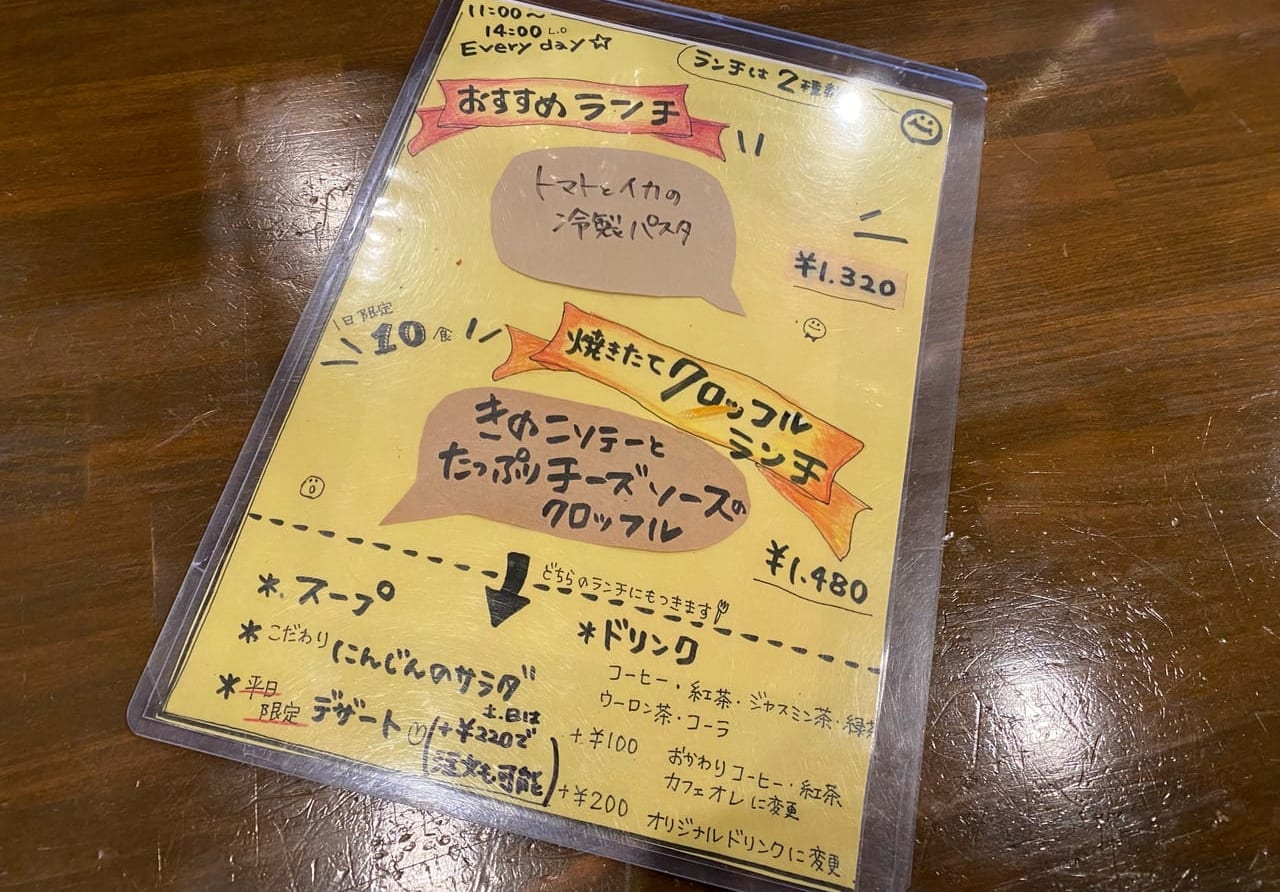 11:00~
14:00 L.O
Every day☆
ランチは2種類
おすすめランチ
トマトとイカの
冷製パスタ
¥1.320
1日限定
10食
焼きたてクロッフル
ランチ
きのこソテーと
たっぷりチーズソースの
クロッフル
¥1.480
どちらのランチにもつきます
*.スープ
*こだわり にんじんのサラダ
*平日
限定 デザート
(土.日は
+¥220で
注文も可能)
*ドリンク
コーヒー・紅茶・ジャスミン茶・緑茶
ウーロン茶・コーラ
+¥100 おかわりコーヒー・紅茶
カフェオレに変更
+¥200 オリジナルドリンクに変更